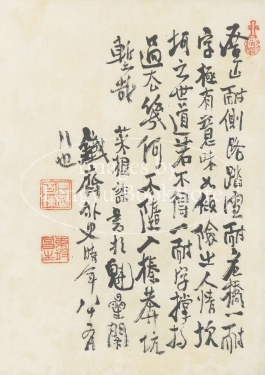 登山耐側路踏雪耐危橋一耐
字極有意味如傾險之人情坎
坷之世道若不得一耐字撐持
過去幾何不墮入榛莽坑
塹哉
菜根譚書於魁星閣
鐵齋外史時年八十有
八也